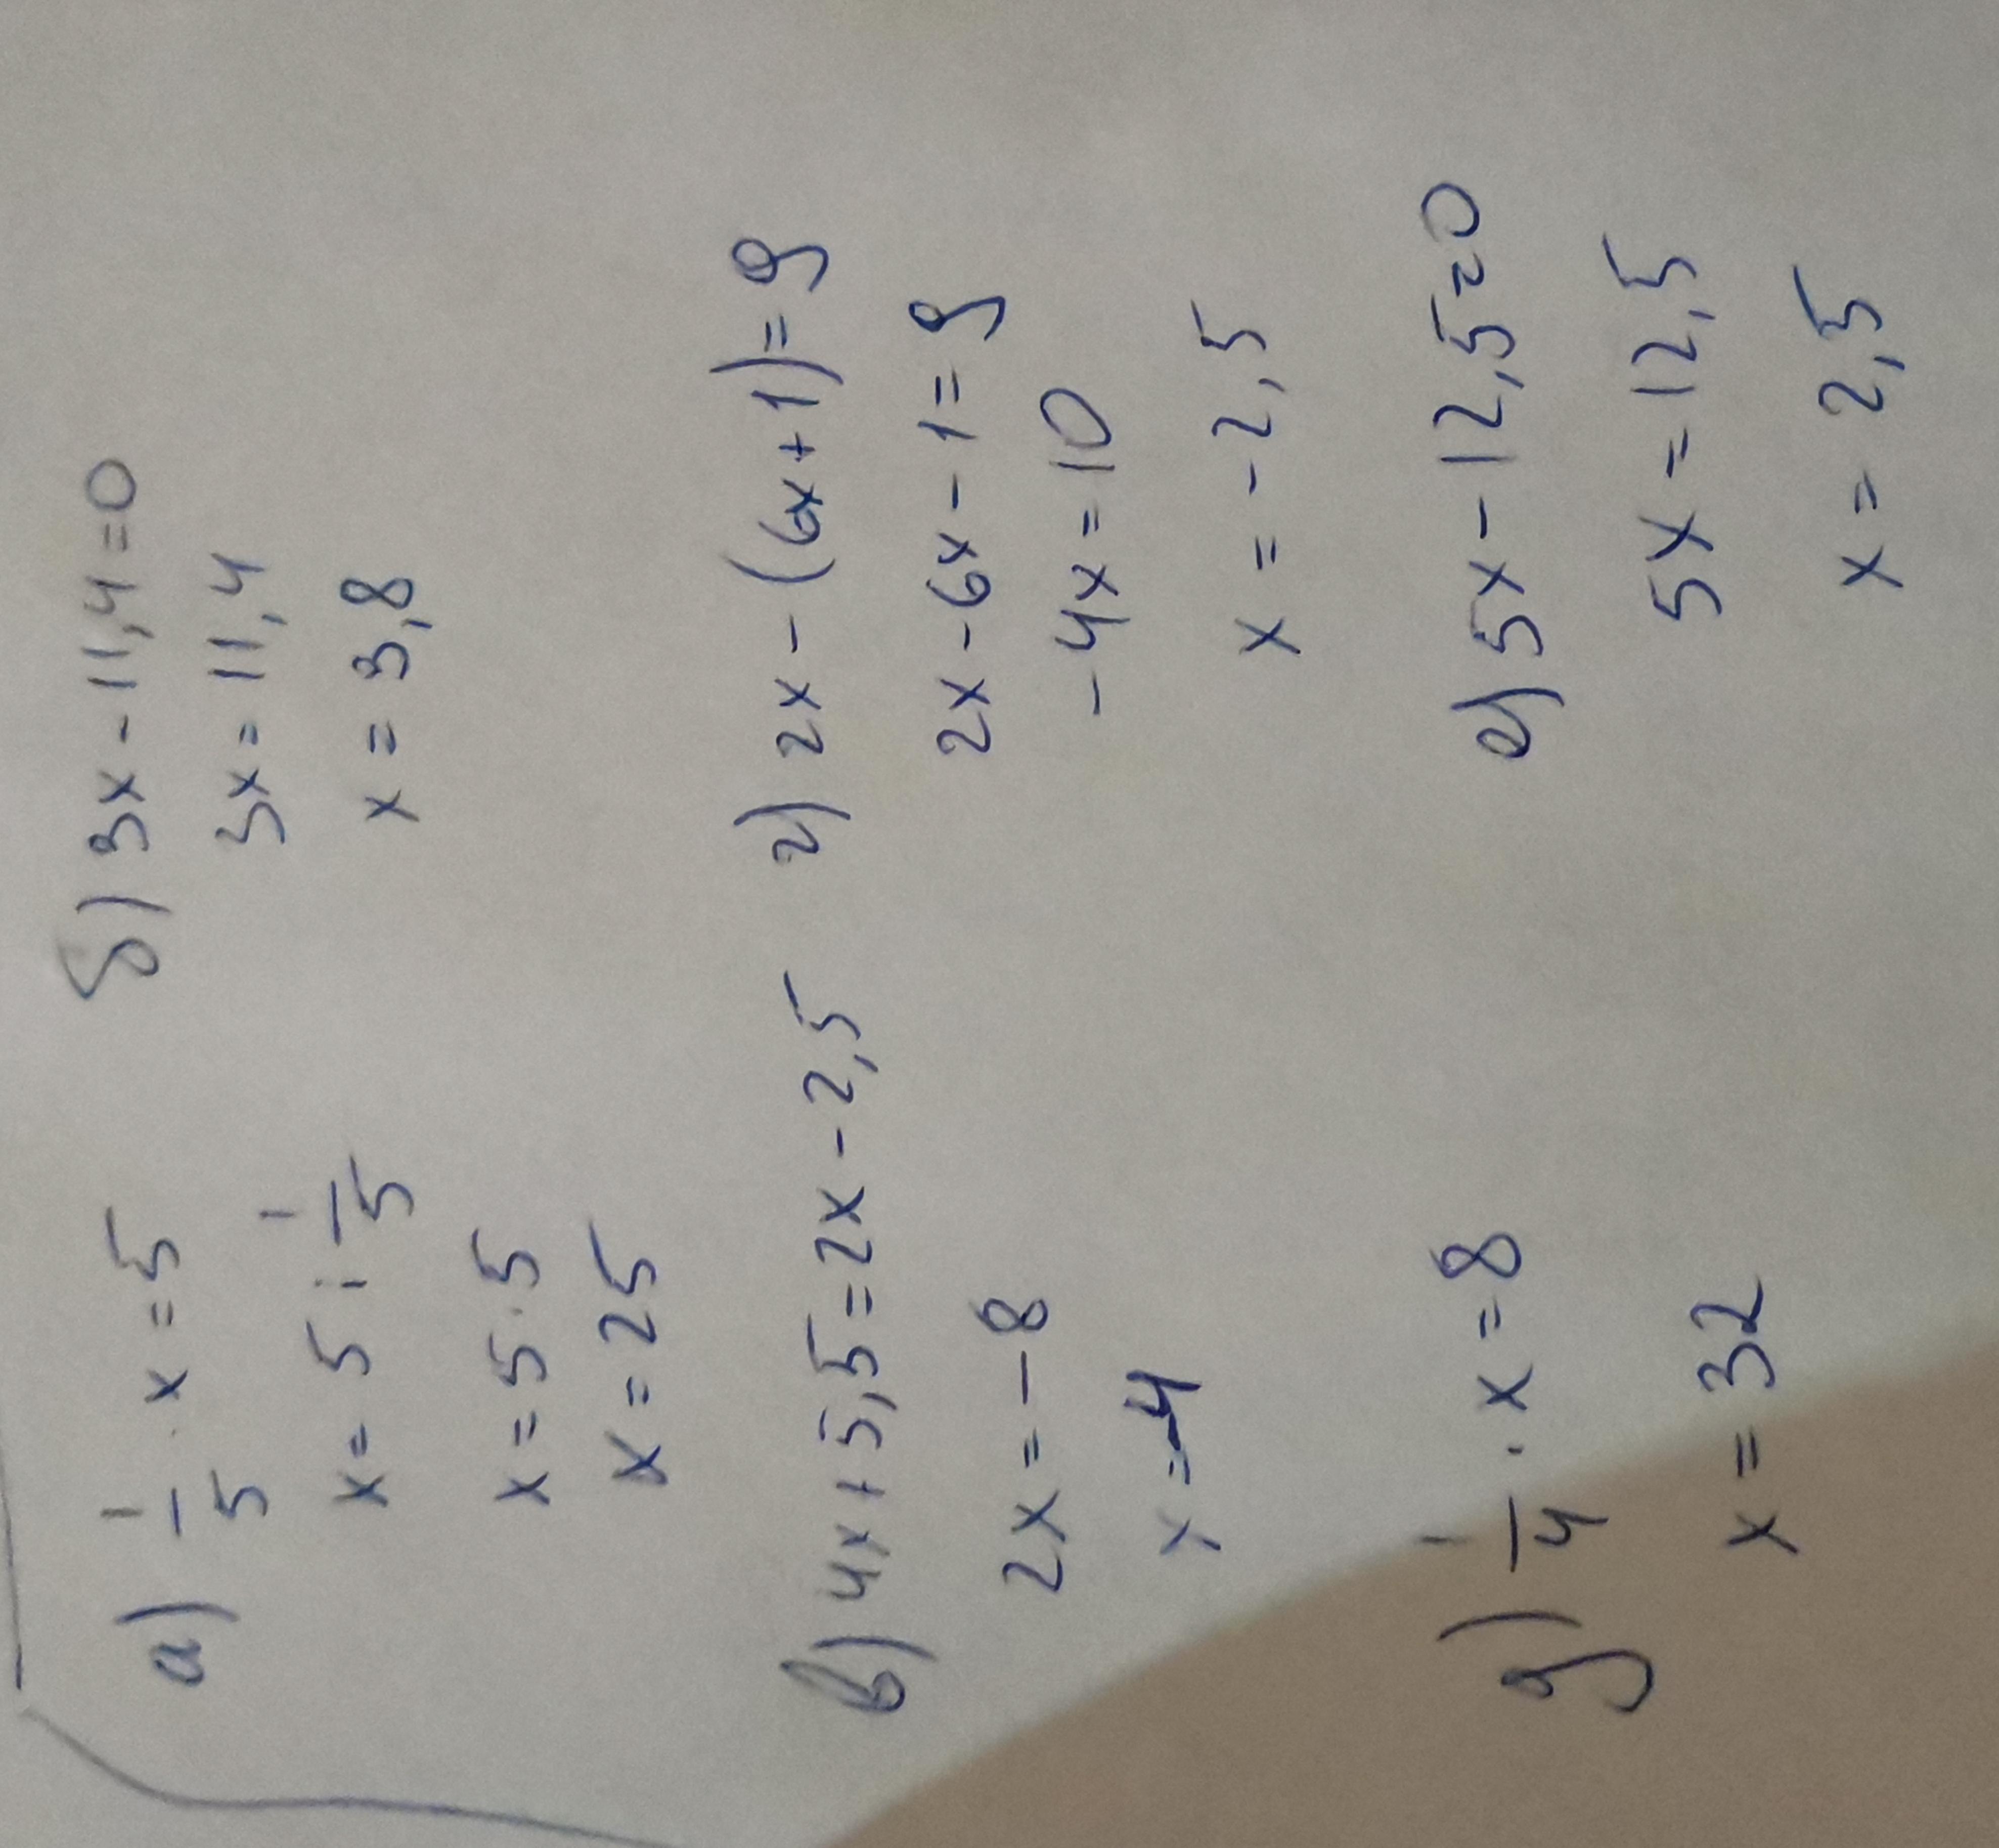 а) 1/5 · x = 5
x = 5 : 1/5
x = 5 · 5
x = 25
б) 3x - 11,4 = 0
3x = 11,4
x = 3,8
в) 4x + 5,5 = 2x - 2,5
2x = -8
x = -4
г) 2x - (6x + 1) = 9
2x - 6x - 1 = 9
-4x = 10
x = -2,5
д) 1/4 · x = 8
x = 32
е) 5x - 12,5 = 0
5x = 12,5
x = 2,5